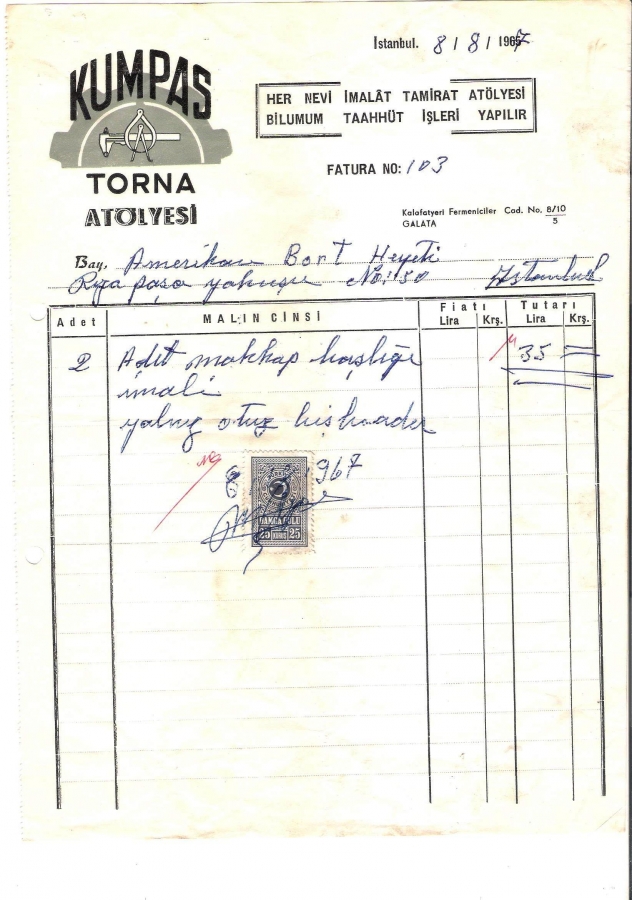 İstanbul. 8 / 8 / 1967
KUMPAS
TORNA
ATÖLYESİ
HER NEVİ İMALÂT TAMİRAT ATÖLYESİ
BİLUMUM TAAHHÜT İŞLERİ YAPILIR
FATURA NO: 103
Kalafatyeri Fermeniciler Cad. No. 8/10
GALATA 5
Bay, Amerikan Bort Heyeti
Rıza paşa yokuşu No: 50 İstanbul
Adet MALIN CİNSİ Fiatı Tutarı
Lira Krş. Lira Krş.
2 Adet makkap başlığı 35 =
imali
yalnız otuz beş liradır
8 8 967
DAMGA PULU
25 KURUŞ 25